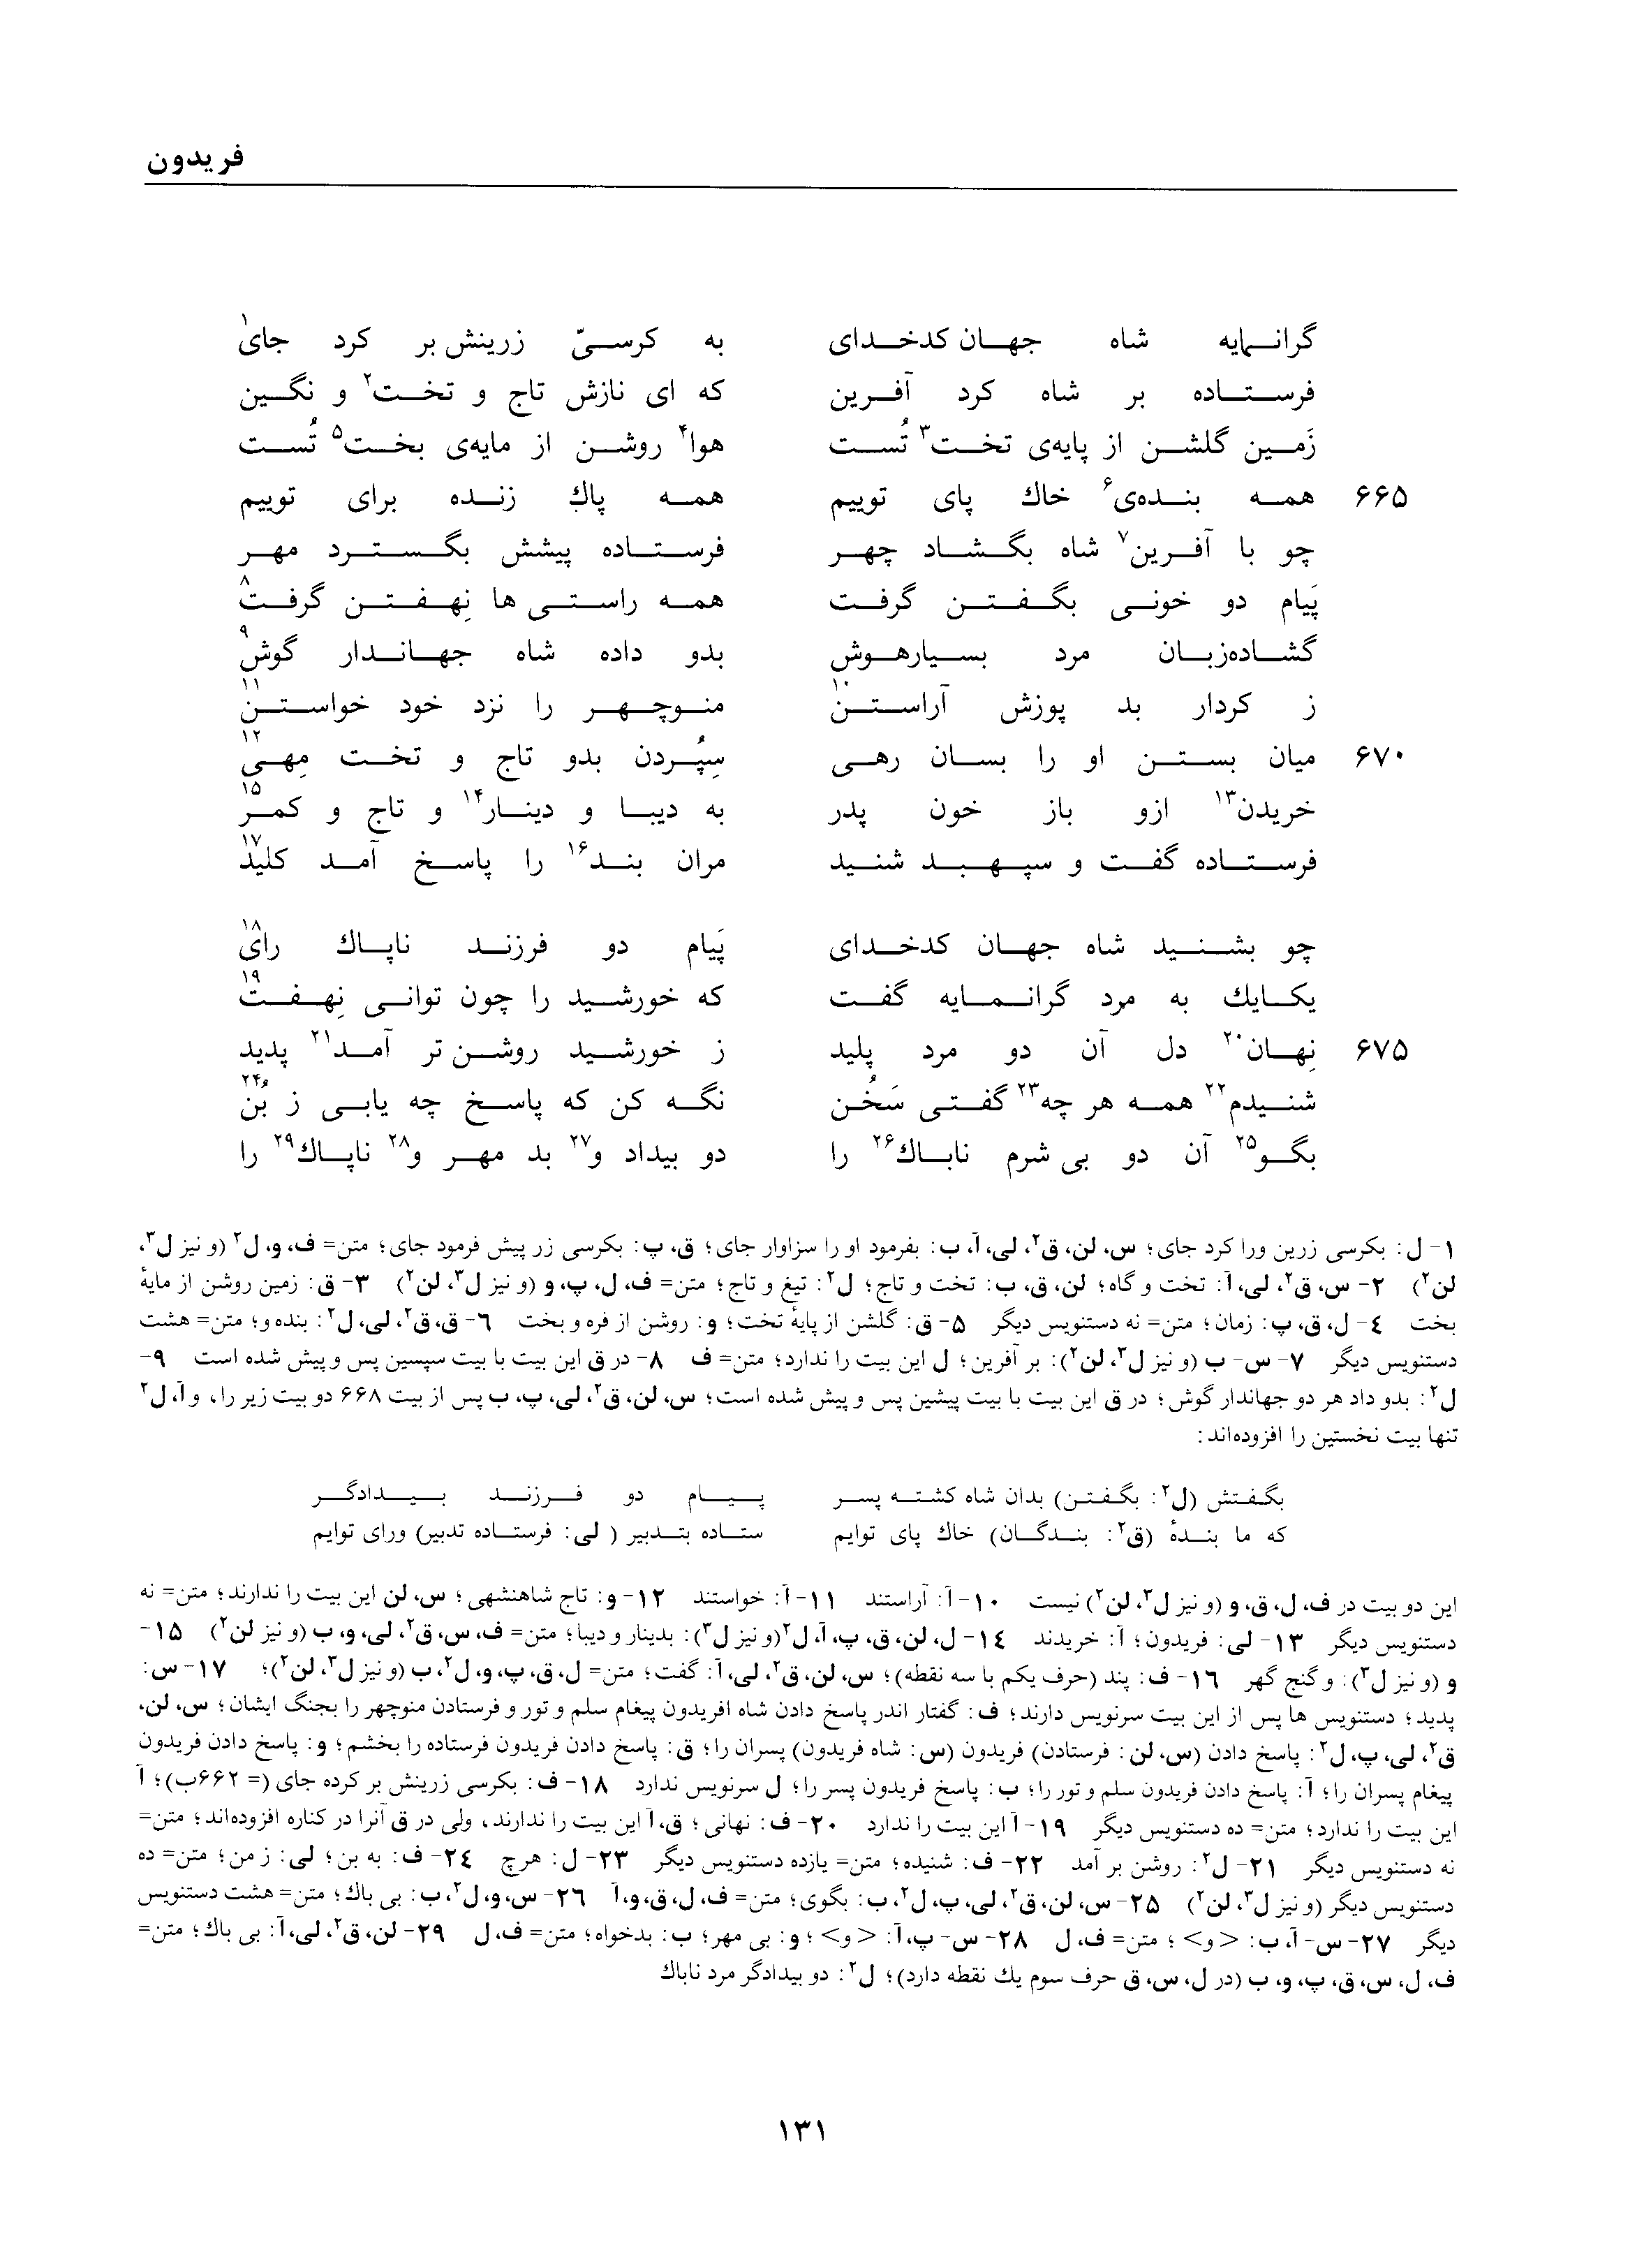 فریدون
گرانمایه شاه جهان کدخدای به کرسیّ زرینش بر کرد جای۱
فرستاده بر شاه کرد آفرین که ای نازش تاج و تخت۲ و نگین
زَمین گلشن از پایه‌ی تخت۳ تُست هوا۴ روشن از مایه‌ی بخت۵ تُست
۶۶۵ همه بنده‌ی۶ خاك پای توییم همه پاك زنده برای توییم
چو با آفرین۷ شاه بگشاد چهر فرستاده پیشش بگسترد مهر
پَیام دو خونی بگفتن گرفت همه راستی ها نِهفتن گرفت۸
گشاده‌زبان مرد بسیارهوش بدو داده شاه جهاندار گوش۹
ز کردار بد پوزش آراستن۱۰ منوچهر را نزد خود خواستن۱۱
۶۷۰ میان بستن او را بسان رهی سِپُردن بدو تاج و تخت مِهی۱۲
خریدن۱۳ ازو باز خون پدر به دیبا و دینار۱۴ و تاج و کمر۱۵
فرستاده گفت و سپهبد شنید مران بند۱۶ را پاسخ آمد کلید۱۷
چو بشنید شاه جهان کدخدای پَیام دو فرزند ناپاك رای۱۸
یکایك به مرد گرانمایه گفت که خورشید را چون توانی نِهفت۱۹
۶۷۵ نِهان۲۰ دل آن دو مرد پلید ز خورشید روشن تر آمد۲۱ پدید
شنیدم۲۲ همه هر چه۲۳ گفتی سَخُن نگه کن که پاسخ چه یابی ز بُن۲۴
بگو۲۵ آن دو بی شرم ناباك۲۶ را دو بیداد و۲۷ بد مهر و۲۸ ناپاك۲۹ را
۱- ل: بکرسی زرین ورا کرد جای؛ س، لن، ق۲، لی، آ، ب: بفرمود او را سزاوار جای؛ ق، پ: بکرسی زر پیش فرمود جای؛ متن= ف، و، ل۲ (و نیز ل۳،
لن۲) ۲- س، ق۲، لی، آ: تخت و گاه؛ لن، ق، ب: تخت و تاج؛ ل۲: تیغ و تاج؛ متن= ف، ل، پ، و (و نیز ل۳، لن۲) ۳- ق: زمین روشن از مایهٔ
بخت ٤- ل، ق، پ: زمان؛ متن= نه دستنویس دیگر ۵- ق: گلشن از پایهٔ تخت؛ و: روشن از فره و بخت ٦- ق، ق۲، لی، ل۲: بنده و؛ متن= هشت
دستنویس دیگر ۷- س- ب (و نیز ل۳، لن۲): بر آفرین؛ ل این بیت را ندارد؛ متن= ف ۸- در ق این بیت با بیت سپسین پس و پیش شده است ۹-
ل۲: بدو داد هر دو جهاندار گوش؛ در ق این بیت با بیت پیشین پس و پیش شده است؛ س، لن، ق۲، لی، پ، ب پس از بیت ۶۶۸ دو بیت زیر را، و آ، ل۲
تنها بیت نخستین را افزوده‌اند:
بگفتش (ل۲: بگفتن) بدان شاه کشته پسر پیام دو فرزند بیدادگر
که ما بندهٔ (ق۲: بندگان) خاك پای توایم ستاده بتدبیر ( لی: فرستاده تدبیر) ورای توایم
این دو بیت در ف، ل، ق، و (و نیز ل۳، لن۲) نیست ۱۰- آ: آراستند ۱۱- آ: خواستند ۱۲- و: تاج شاهنشهی؛ س، لن این بیت را ندارند؛ متن= نه
دستنویس دیگر ۱۳- لی: فریدون؛ آ: خریدند ۱٤- ل، لن، ق، پ، آ، ل۲(و نیز ل۳): بدینار و دیبا؛ متن= ف، س، ق۲، لی، و، ب (و نیز لن۲) ۱۵-
و (و نیز ل۳): و گنج گهر ۱٦- ف: پند (حرف یکم با سه نقطه)؛ س، لن، ق۲، لی، آ: گفت؛ متن= ل، ق، پ، و، ل۲، ب (و نیز ل۳، لن۲)؛ ۱۷- س:
پدید؛ دستنویس ها پس از این بیت سرنویس دارند؛ ف: گفتار اندر پاسخ دادن شاه افریدون پیغام سلم و تور و فرستادن منوچهر را بجنگ ایشان؛ س، لن،
ق۲، لی، پ، ل۲: پاسخ دادن (س، لن: فرستادن) فریدون (س: شاه فریدون) پسران را؛ ق: پاسخ دادن فریدون فرستاده را بخشم؛ و: پاسخ دادن فریدون
پیغام پسران را؛ آ: پاسخ دادن فریدون سلم و تور را؛ ب: پاسخ فریدون پسر را؛ ل سرنویس ندارد ۱۸- ف: بکرسی زرینش بر کرده جای (= ۶۶۲ب)؛ آ
این بیت را ندارد؛ متن= ده دستنویس دیگر ۱۹- آ این بیت را ندارد ۲۰- ف: نهانی؛ ق، آ این بیت را ندارند، ولی در ق آنرا در کناره افزوده‌اند؛ متن=
نه دستنویس دیگر ۲۱- ل۲: روشن بر آمد ۲۲- ف: شنیده؛ متن= یازده دستنویس دیگر ۲۳- ل: هرچ ۲٤- ف: به بن؛ لی: ز من؛ متن= ده
دستنویس دیگر (و نیز ل۳، لن۲) ۲۵- س، لن، ق۲، لی، پ، ل۲، ب: بگوی؛ متن= ف، ل، ق، و، آ ۲٦- س، و، ل۲، ب: بی باك؛ متن= هشت دستنویس
دیگر ۲۷- س- آ، ب: <و>؛ متن= ف، ل ۲۸- س- پ، آ: <و>؛ و: بی مهر؛ ب: بدخواه؛ متن= ف، ل ۲۹- لن، ق۲، لی، آ: بی باك؛ متن=
ف، ل، س، ق، پ، و، ب (در ل، س، ق حرف سوم یك نقطه دارد)؛ ل۲: دو بیدادگر مرد ناباك
۱۳۱